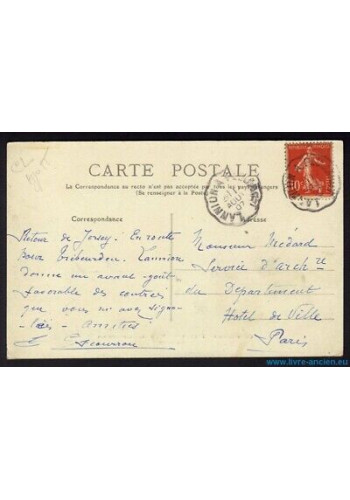 CARTE POSTALE
La Correspondance au recto n'est pas acceptée par tous les pays étrangers
(Se renseigner à la Poste)
Correspondance
Adresse
Retour de Jersey. En route
pour Trébeurden. Lannion
donne un avant-goût
favorable des contrées
que vous m'avez signa-
lées. Amitiés
Monsieur Médard
Service d'Archre
du Département
Hotel de Ville
Paris
LANNION
10
www.livre-ancien.eu